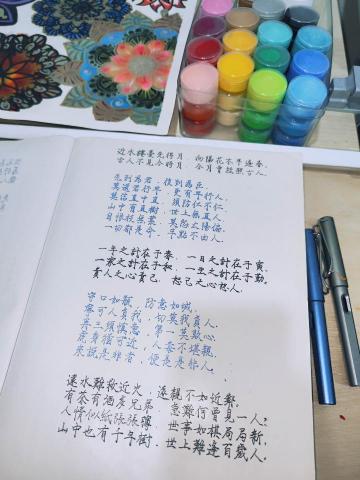 近水樓臺先得月，向陽花木早逢春。
古人不見今時月，今月曾經照古人。
先到為君，後到為臣。
莫道君行早，更有早行人。
莫信直中直，須防仁不仁。
山中有直樹，世上無直人。
自恨枝無葉，莫怨太陽偏。
一切都是命，半點不由人。
一年之計在于春，一日之計在于寅。
一家之計在于和，一生之計在于勤。
責人之心責己，恕己之心恕人。
守口如瓶，防意如城。
寧可人負我，切莫我負人。
再三須慎意，第一莫欺心。
虎身猶可近，人毒不堪親。
來說是非者，便是是非人。
遠水難救近火，遠親不如近鄰。
有茶有酒多兄弟，急難何曾見一人？
人情似紙張張薄，世事如棋局局新。
山中也有千年樹，世上難逢百歲人。